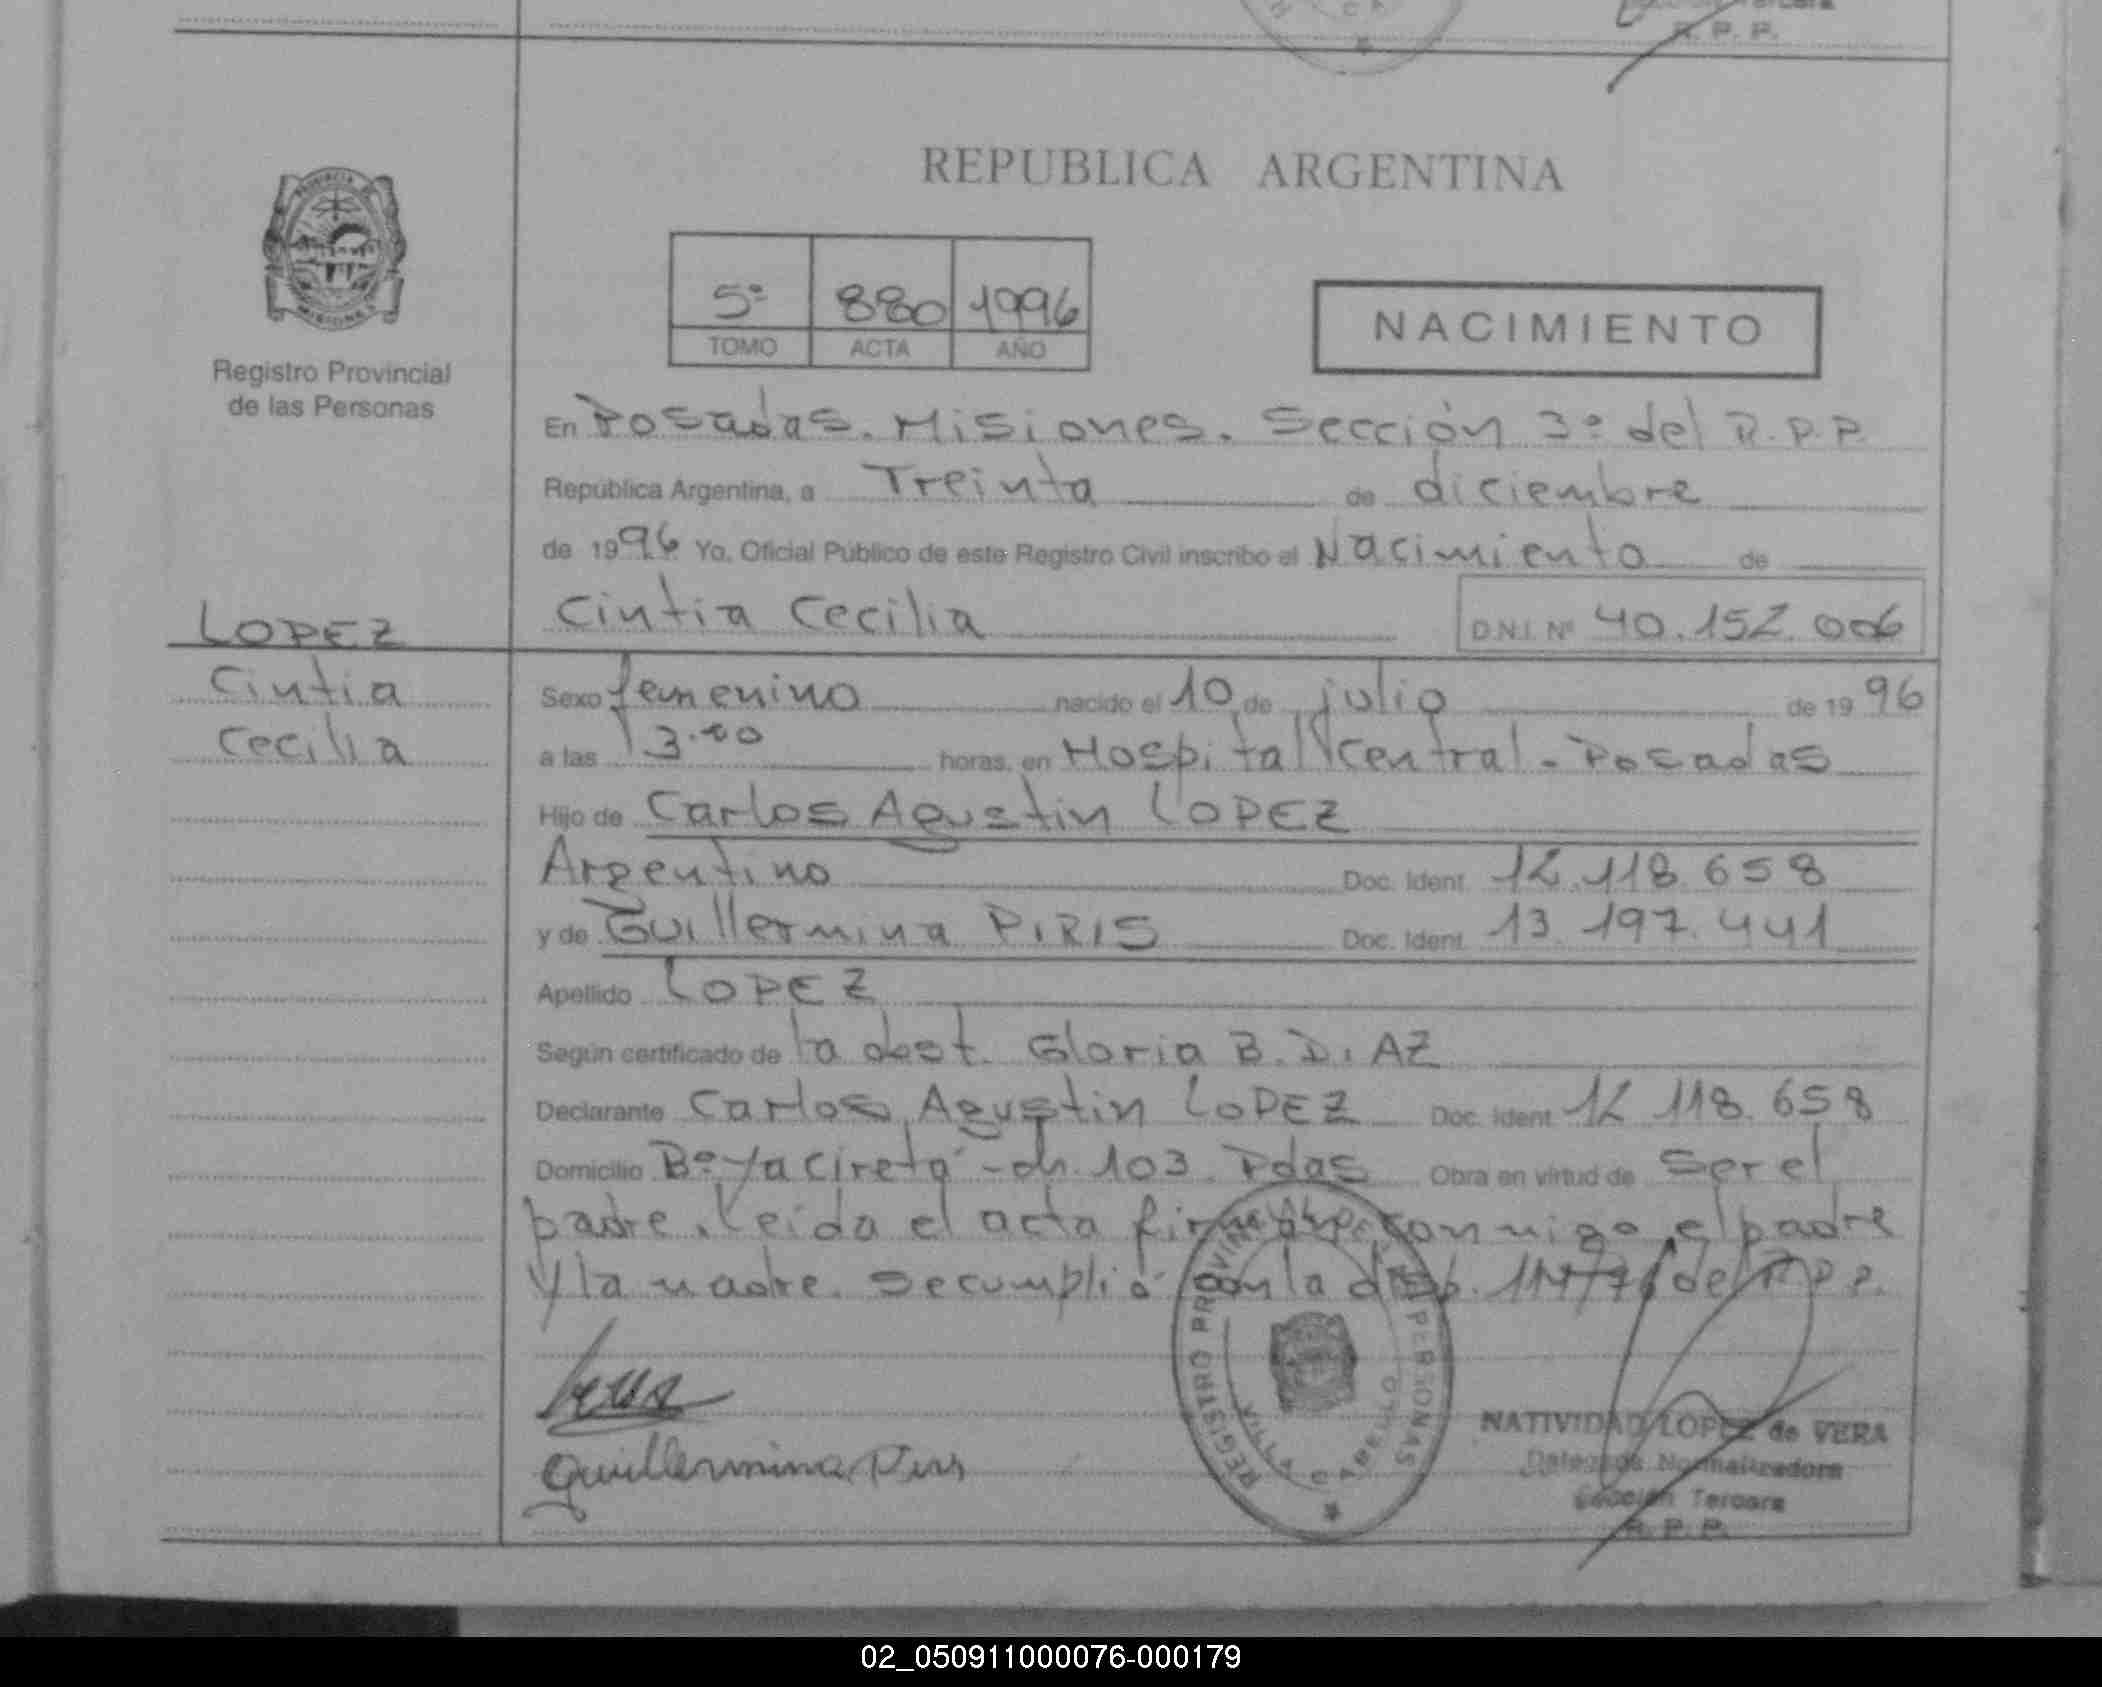 R. P. P.
REPUBLICA ARGENTINA
PROVINCIA DE
MISIONES
Registro Provincial
de las Personas
5º 880 1996
TOMO ACTA AÑO
NACIMIENTO
En Posadas. Misiones. Sección 3º del R.P.P.
República Argentina, a Treinta de diciembre
de 1996 Yo, Oficial Público de este Registro Civil inscribo el Nacimiento de
Cintia Cecilia D.N.I. Nº 40.152.006
LOPEZ
Cintia
Cecilia
Sexo femenino nacido el 10 de julio de 1996
a las 13.00 horas, en Hospital Central - Posadas
Hijo de Carlos Agustin LOPEZ
Argentino Doc. Ident. 12.118.658
y de Guillermina PIRIS Doc. Ident. 13.197.441
Apellido LOPEZ
Según certificado de la obst. Gloria B. DIAZ
Declarante Carlos Agustin LOPEZ Doc. Ident. 12.118.658
Domicilio Bº Yaciretá - ch. 103. Pdas Obra en virtud de ser el
padre. Leida el acta firman conmigo el padre
y la madre. Se cumplió con la disp. 114/76 del R.P.P.
REGISTRO PROVINCIAL PERSONAS
Guillermina Piris
NATIVIDAD LOPEZ de VERA
Delegada Normalizadora
Sección Tercera
R. P. P.
02_050911000076-000179